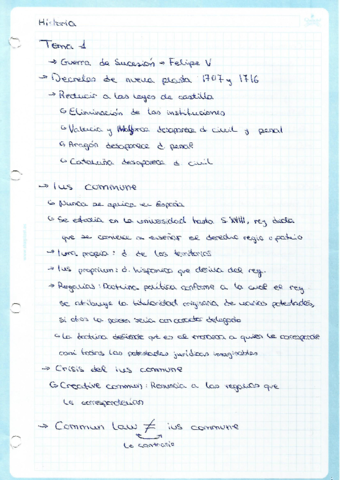 Historia
Tema 1
→ Guerra de Sucesión → Felipe V
→ Decretos de nueva planta 1707 y 1716
→ Reducir a las leyes de castilla
↳ Eliminación de las instituciones
↳ Valencia y Mallorca desaparece d civil y penal
↳ Aragón desaparece d penal
↳ Cataluña desaparece d civil
→ Ius commune
↳ Nunca se aplica en España
↳ Se estudia en la universidad hasta S.XVIII, rey
que se comience a enseñar el derecho regio o patrio
→ Iura propia: d de los territorios
→ Ius proprium: d. hispanico que deriva del rey.
→ Regalías: Doctrina política conforme a la cual el rey
se atribuye la titularidad originaria de varias potestades,
si otro la posee seria concesión delegada
↳ La doctrina defiende que es al monarca a quien le corresponde
casi todas las potestades jurídicas imaginables
→ Crisis del ius commune
↳ Creative commun: Renuncia a las regalías que
le correspondían
→ Commun law ≠ ius commune
lo contrario